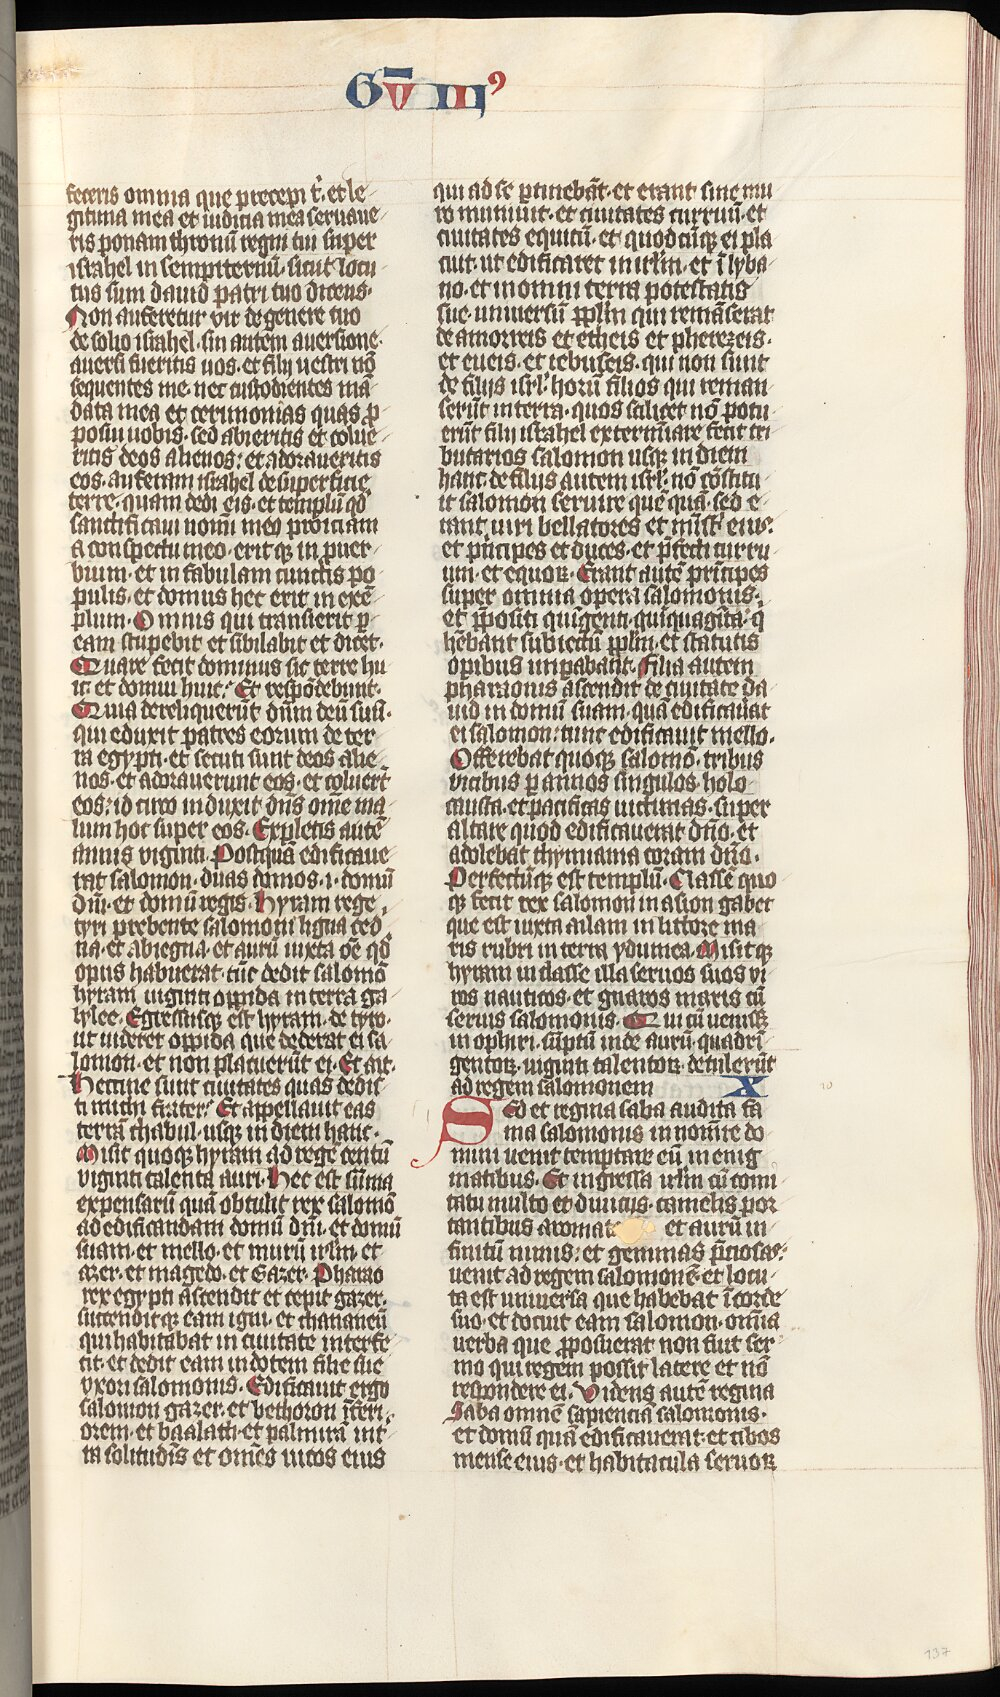 Gū III⁹
feceris omnia que precepi t̾. et le
gitima mea et iudicia mea servave
ris ponam thronū regni tui super
israhel in sempiternū. sicut locu
tus sum david patri tuo dicens.
Non auferetur vir de genere tuo
de solio israhel. sin autem aversione
aversi fueritis vos. et filij vestri nō
sequentes me. nec custodientes mā
data mea et cerimonias quas p̄
posui vobis. sed abieritis et colue
ritis deos alienos: et adoraveritis
eos. auferam israhel de superficie
terre. quam dedi eis. et templū qd̾
sanctificavi nomī meo proiciam
a conspectu meo. erit qꝫ in prver
bium. et in fabulam cunctis po
pulis. et domus hec erit in exē
plum. Omnis qui transierit ꝑ
eam stupebit et sibilabit et dicet.
Quare fecit dominus sic terre hu
ic. et domui huic. Et respōdebunt.
Quia dereliquerūt dn̄m deū suū.
qui eduxit patres eorum de ter
ra egypti. et secuti sunt deos alie
nos. et adoraverunt eos. et coluer̄t
eos: id circo induxit dn̄s om̄e ma
lum hoc super eos. Expletis autē
annis viginti. Postquā edificave
rat salomon. duas domos. .i. domū
dn̄i. et domū regis. hyram rege
tyri prebente salomoni ligna ced
na. et abiegna. et aurū iuxta oē qd̾
opus habuerat. tūc dedit salomō
hyram viginti oppida in terra ga
lylee. Egressusqꝫ est hyram. de tyro.
ut videret oppida que dederat ei sa
lomon. et non placuerūt ei. Et ait.
Heccine sunt civitates quas dedis
ti michi frater. Et appellavit eas
terrā chabul. usqꝫ in diem hanc.
Misit quoqꝫ hyram ad regē centū
viginti talenta auri. Hec est sūma
expensarū quā obtulit rex salomō
ad edificandam domū dn̄i. et domū
suam. et mello. et murū irlm̄. et
azer. et magedo. et Gazer. Pharao
rex egypti ascendit et cepit gazer.
succenditqꝫ eam igni. et chananeū
qui habitabat in civitate interfe
cit. et dedit eam in dotem filie sue
vxori salomonis. Edificavit ergo
salomon gazer. et bethoron īferi
orem. et baalath. et palmira in t̾
ra solitudīs et omēs vicos eius
qui ad se ꝑtinebāt. et erant sine mu
ro munivit. et civitates curruū. et
civitates equitū. et quodcūqꝫ ei pla
cuit. ut edificaret in irlm̄. et ī lyba
no. et in omni terra potestatis
sue. universū ppl̄m qui remāserat
de amorreis et etheis et pherezeis.
et eveis. et iebuseis. qui non sunt
de filijs isrl̄. horū filios qui reman
serūt in terra. quos scilicet nō potu
erūt filij israhel extermīare fecit tri
butarios salomon usqꝫ in diem
hanc. de filijs autem isrl̄. nō cōstitu
it salomon servire quēquā. sed e
rant viri bellatores et mīstri eius.
et prīcipes et duces. et p̄fecti curru
um. et equoꝝ. Erant autē prīcipes
super omnia opera salomonis.
et ppositi quīgenti. quīquagīta. q
hēbant subiectū ppl̄m. et statutis
opibus impabant. Filia autem
pharaonis ascendit de civitate da
vid in domū suam. quā edificavat
ei salomon: tunc edificavit mello.
Offerebat quoqꝫ salomō. tribus
vicibus ꝑ annos singulos holo
causta. et pacificas victimas. super
altare quod edificaverat dn̄o. et
adolebat thymiama coram dn̄o.
Perfectūqꝫ est templū. Classē quo
qꝫ fecit rex salomon in asion gaber
que est iuxta ailam in littore ma
ris rubri in terra ydumea. Misitqꝫ
hyram in classe illa servos suos vi
ros nauticos. et gnaros maris cū
servis salomonis. Qui cū venissꝫ
in ophiri. sūptū inde aurū. quadrī
gentoꝝ. viginti talentoꝝ. detulerūt
ad regem salomonem X
10
Sed et regina saba audita fa
ma salomonis in nomīe do
mini venit temptare eū in enig
matibus. Et ingressa irlm̄ cū comi
tatu multo et divicijs. camelis por
tantibus aromat et aurū in
finitū nimis. et gemmas p̄ciosas:
venit ad regem salomonē. et locu
ta est universa que habebat ī corde
suo. et docuit eam salomon. omīa
verba que pposuerat non fuit ser
mo qui regem possit latere et nō
respondere ei. Videns autē regina
Saba omnē sapienciā salomonis.
et domū quā edificaverat. et cibos
mense eius. et habitacula servoꝝ
137